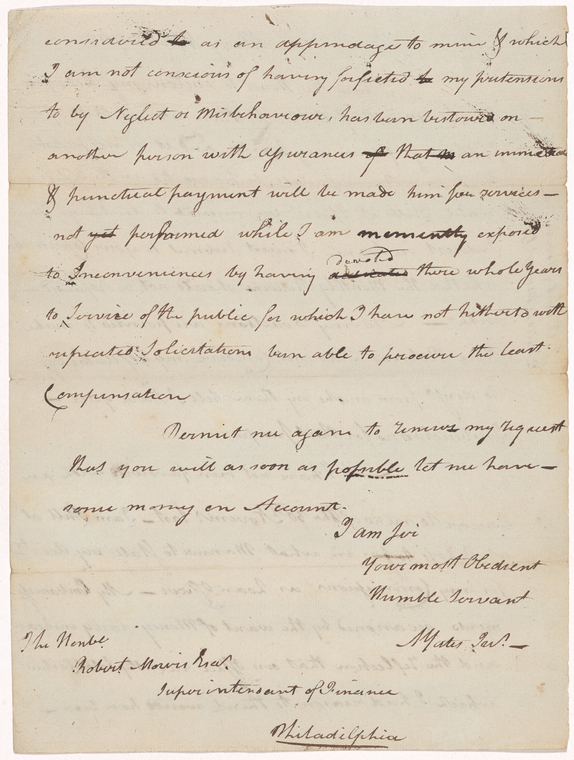 considered to as an appendage to mine & which
I am not conscious of having forfeited to my pretensions
to by Neglect or Misbehaviour, has been bestowed on —
another person with assurances of that an immediate
& punctual payment will be made him for services —
not yet performed while I am momently exposed
to Inconveniences by having dedicated devoted three whole Years
to Service of the public for which I have not hitherto with
repeated Solicitations been able to procure the least
Compensation
Permit me again to renew my request
that you will as soon as possible let me have —
some money on Account.
I am Sir
Your most Obedient
Humble Servant
A Yates Junr. —
The Honble.
Robert Morris Esqr.
Superintendant of Finance
Philadelphia